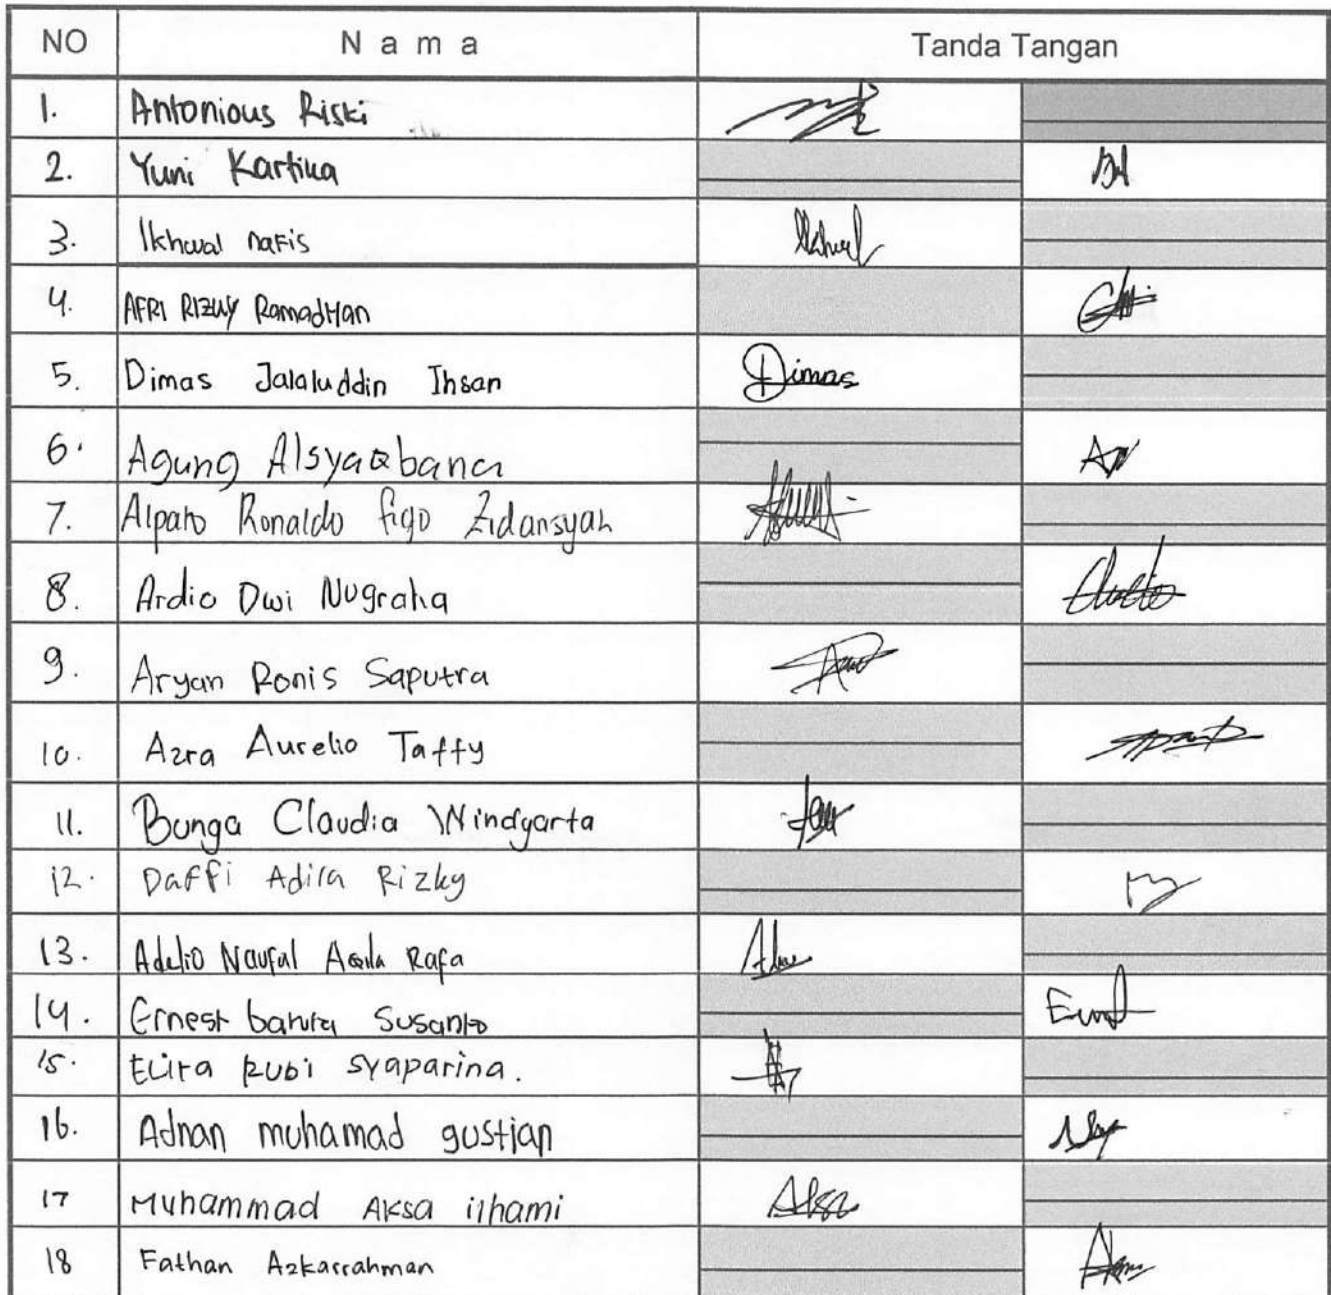 NO Nama Tanda Tangan
1. Antonious Riski
2. Yuni Kartika
3. Ikhwal nafis Ikhwal
4. AFRI RIZKY RamadHan
5. Dimas Jalaluddin Ihsan Dimas
6. Agung Alsyaqbana
7. Alpato Ronaldo figo Zidansyah
8. Ardio Dwi Nugraha
9. Aryan Ronis Saputra
10. Azra Aurelio Taffy
11. Bunga Claudia Windyarta
12. Daffi Adira Rizky
13. Adelio Naufal Aqila Rafa
14. Ernest Susanto
15. Elira Rubi syaparina.
16. Adnan muhamad gustian
17 Muhammad Aksa ilhami Aksa
18 Fathan Azkarrahman